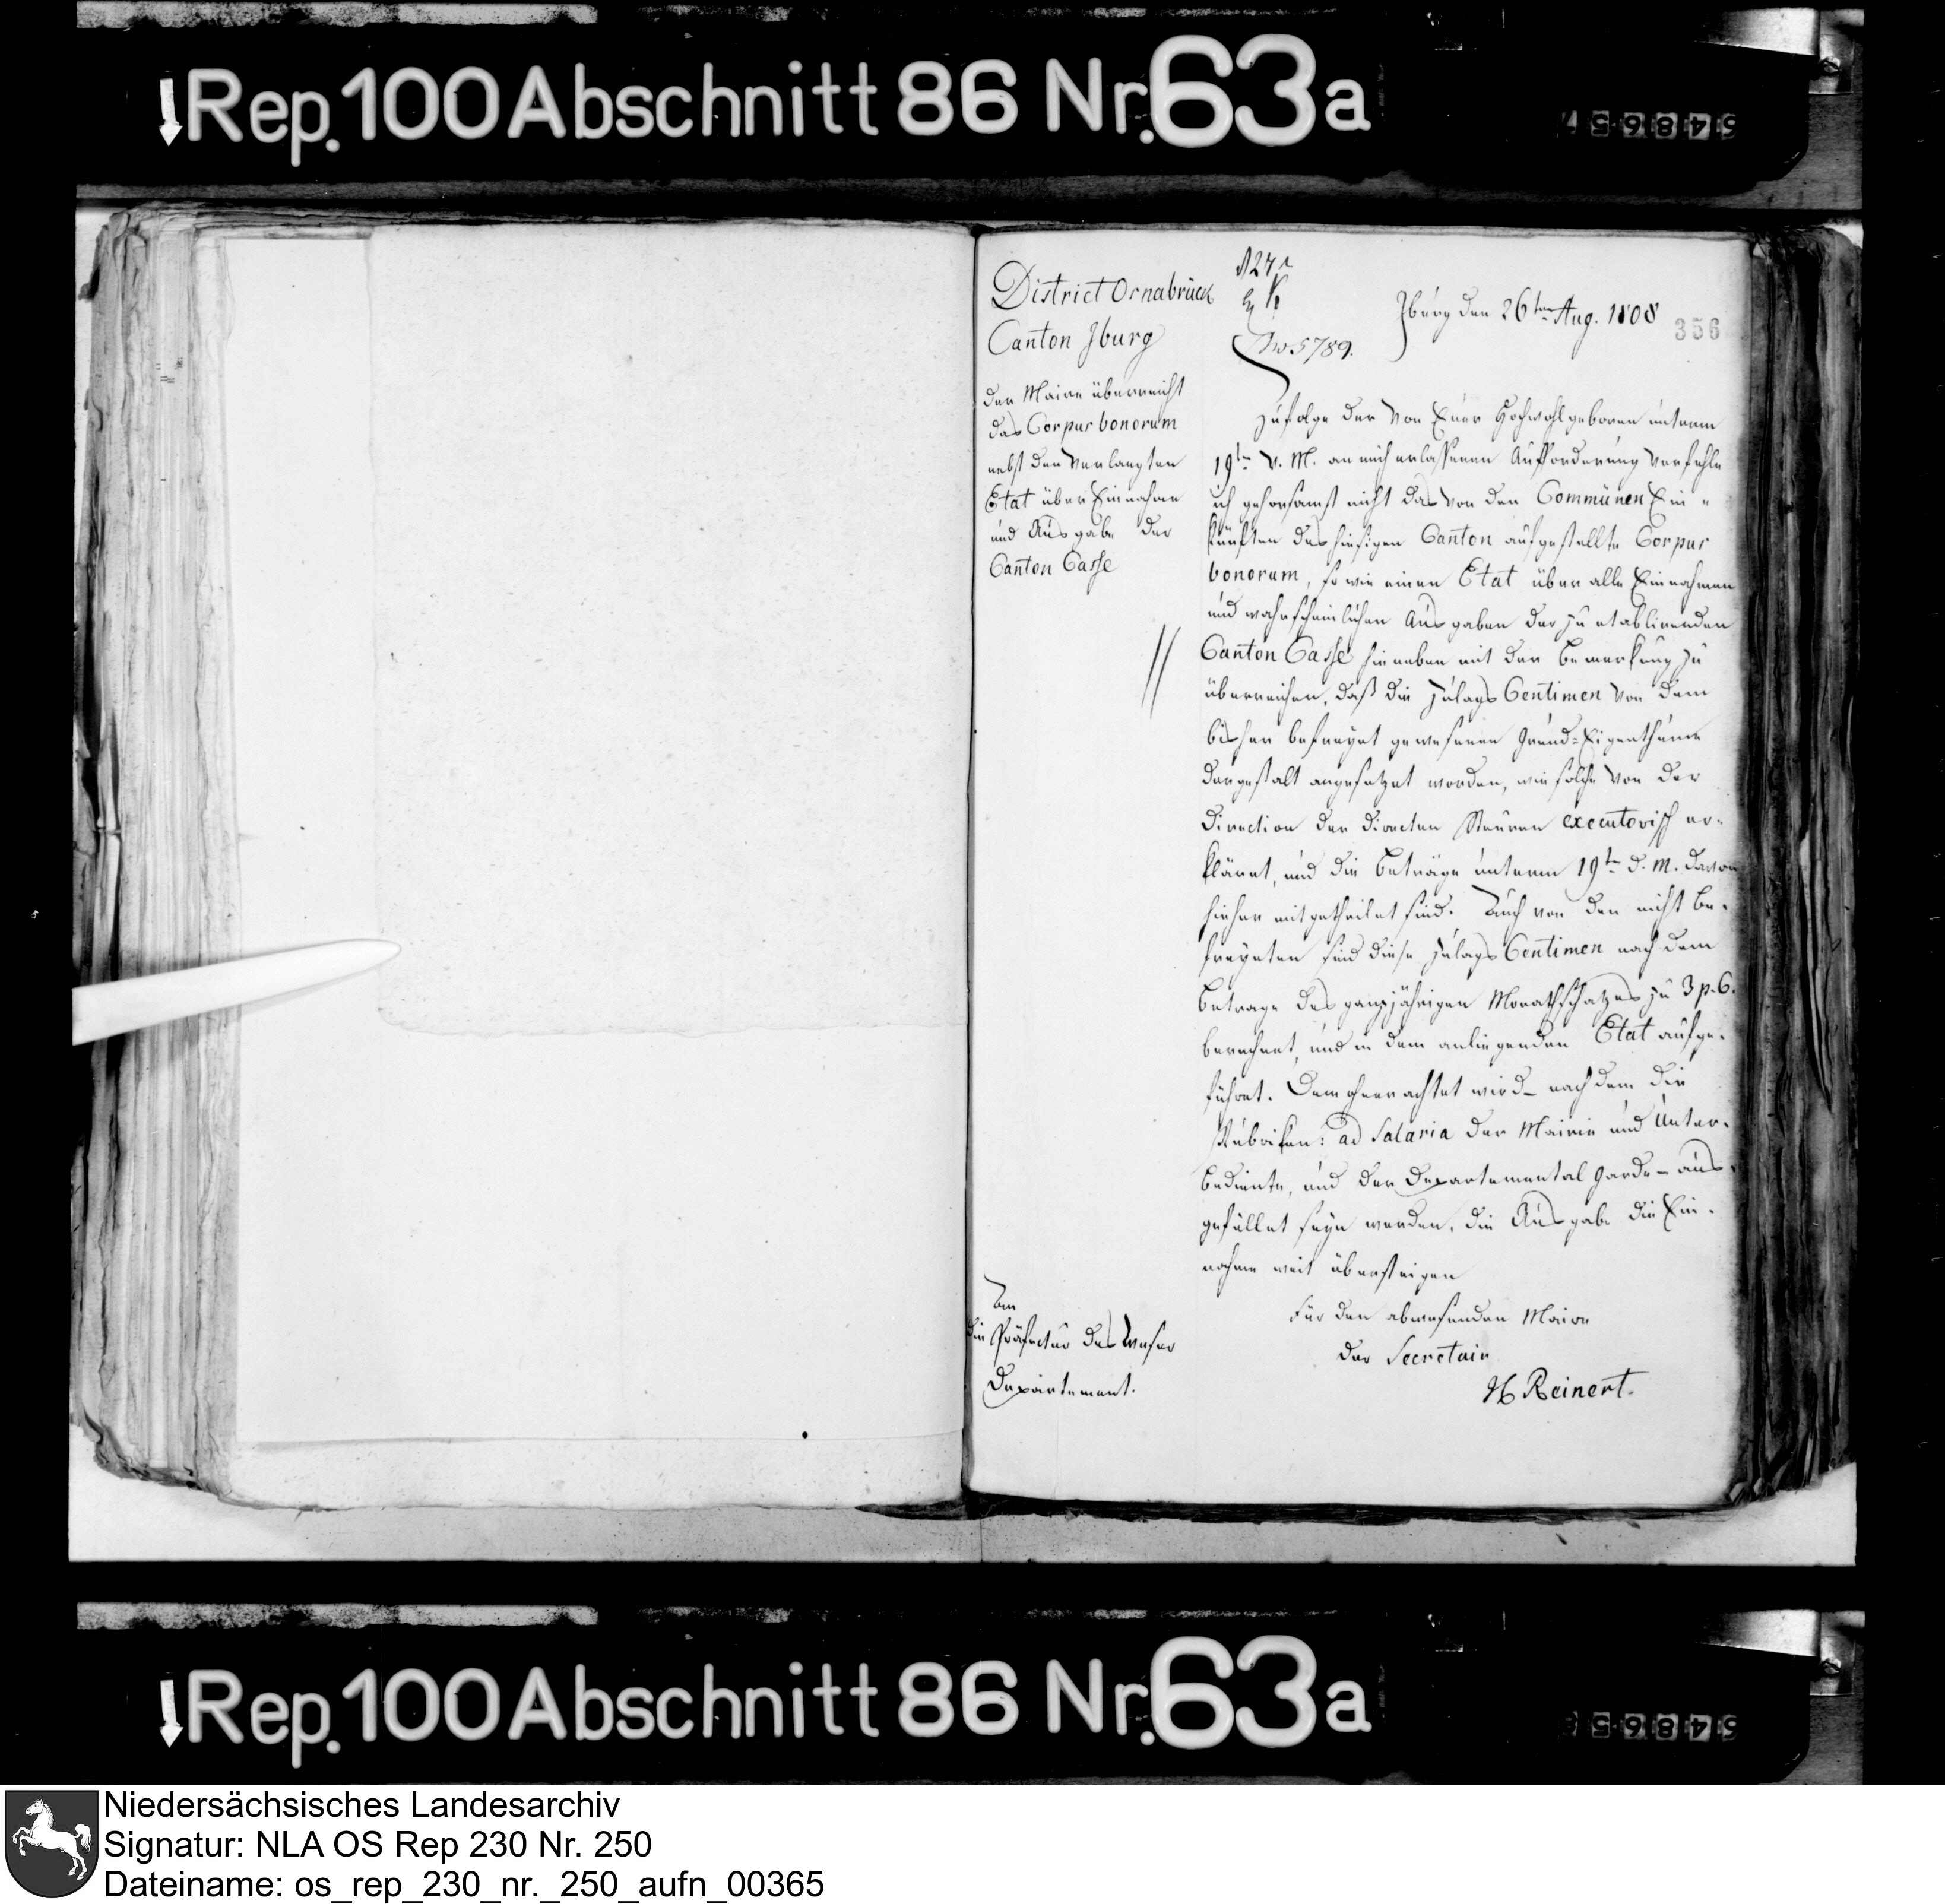 Rep. 100 Abschnitt 86 Nr. 63a
District Osnabrück
Canton Iburg
Der Maire überreicht
das Corpus bonorum
nebst den verlangten
Etat über Einnahme
und Ausgabe der
Canton Casse
No. 5789.
Iburg den 26ten Aug. 1808
356
Zufolge der von Euer Hochwohlgeboren unterm
19ten v. M. an mich erlassenen Aufforderung verfehle
ich gehorsamst nicht das von den Communen Ein-
künften des hiesigen Canton aufgestellte Corpus
bonorum, so wie einen Etat über alle Einnahmen
und wahrscheinlichen Ausgaben der zu etablirenden
Canton Casse hieneben mit der Bemerkung zu
überreichen, daß die Zulags Centimen von dem
bisher befreyet gewesenen Grund-Eigenthume
dergestalt angesetzet worden, wie solche von der
Direction der directen Steuren executorisch er-
kläret, und die Beträge unterm 19ten d. M. davon
hieher mitgetheilet sind. Auch von den nicht be-
freyeten sind diese Zulags Centimen nach dem
Betrage des ganzjährigen Monathschatzes zu 3 p. C.
berechnet, und in dem anliegenden Etat aufge-
führet. Demohnerachtet wird - nachdem die
Rubriken: ad Salaria der Mairie und Unter-
bediente, und der Departemental Garde - aus-
gefüllet seyn werden, die Ausgabe die Ein-
nahme weit übersteigen
An
die Präfectur des Weser
Departement.
Für den abwesenden Maire
der Secretair
H Reinert.
Rep. 100 Abschnitt 86 Nr. 63a
Niedersächsisches Landesarchiv
Signatur: NLA OS Rep 230 Nr. 250
Dateiname: os_rep_230_nr._250_aufn_00365